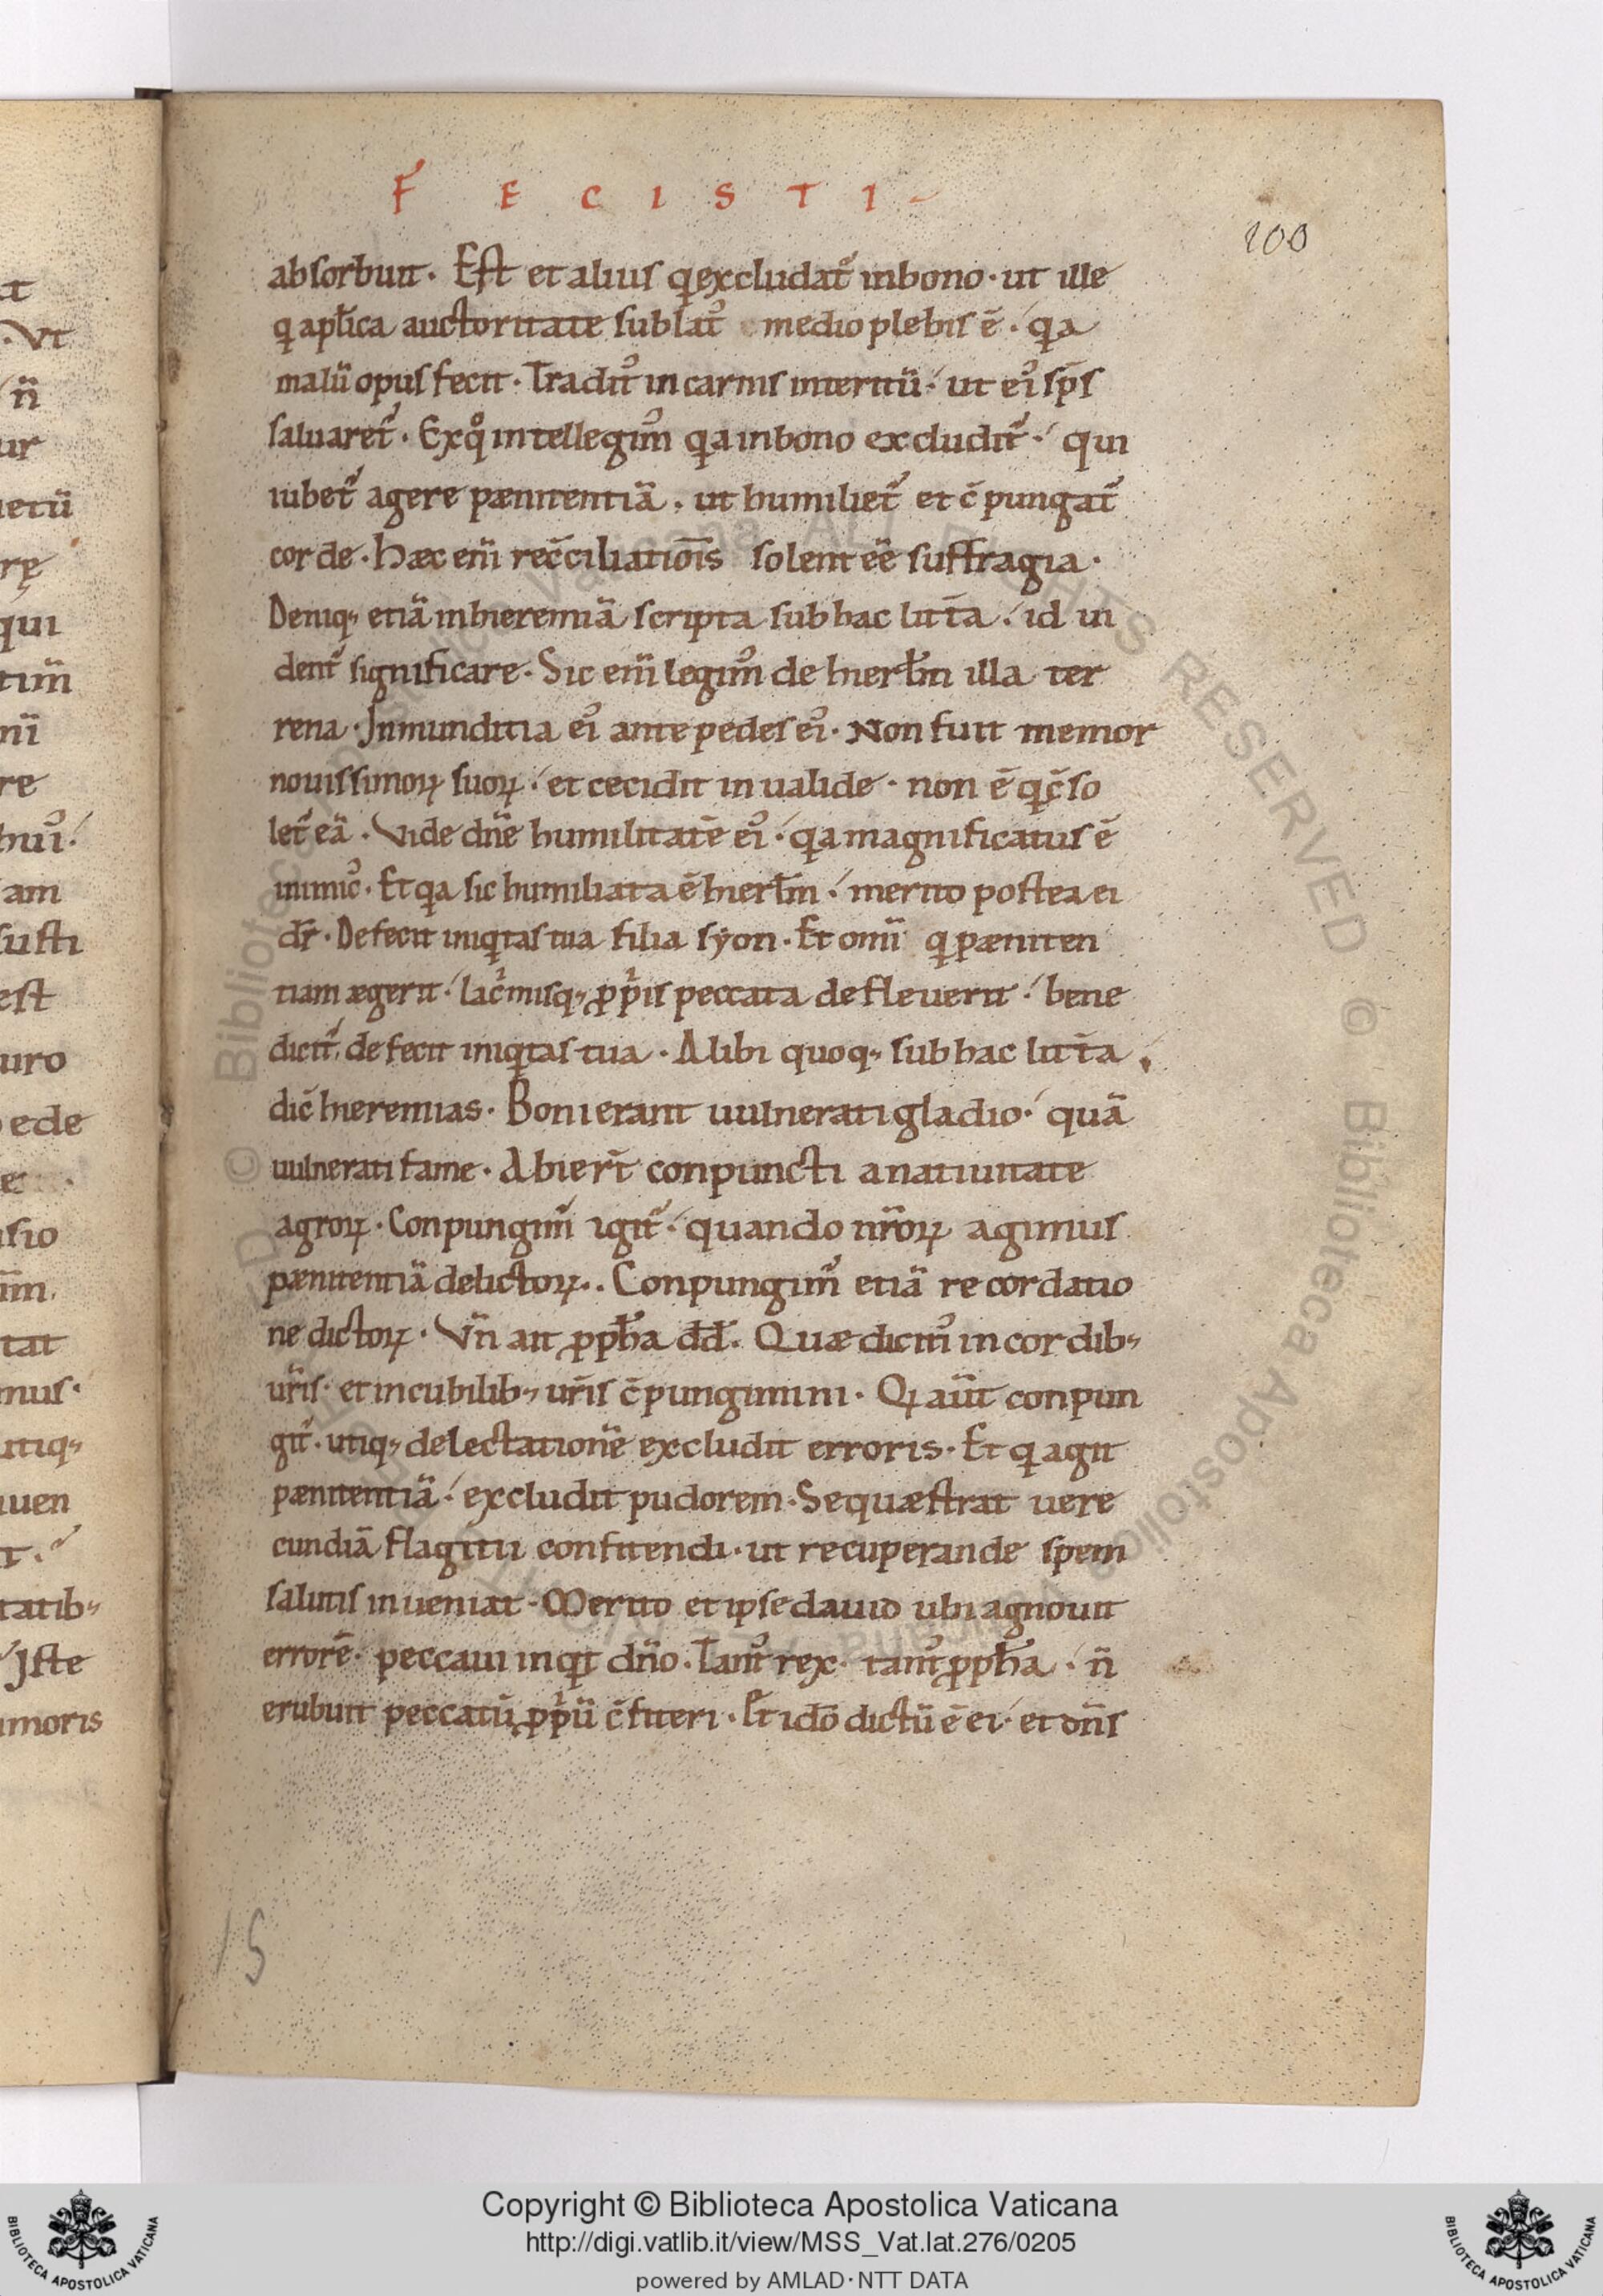 F E C I S T I
100
absorbuit. Est et alius q excludat᷑ in bono. ut ille
q apl̅ica auctoritate sublat᷒ e medio plebis ē. q̇a
malū opus fecit. Tradit᷒ in carnis interitū. ut ei᷒ sp̅s
saluaret᷑. Ex qͦ intellegim᷒ q̇a in bono excludit᷑. qui
iubet᷑ agere pænitentiā. ut humiliet᷑ et c̄pungat᷑
corde. hæc eni̅ rec̄ciliatiōis solent ēe suffragia.
Deniq; etiā in hieremiā scripta sub hac litt̅a. id ui
dent᷑ significare. Sic eni̅ legim᷒ de hierl̅m illa ter
rena. Inmunditia ei᷒ ante pedes ei᷒. Non fuit memor
nouissimoꝝ suoꝝ. et cecidit in ualide. non ē q c̄so
let᷑ eā. Vide dn̅e humilitatē ei᷒. q̇a magnificatus ē
inimic᷒. Et q̇a sic humiliata ē hierl̅m. merito postea ei
dr̅. Defecit iniq̇tas tua filia syon. Et omi̅ q pæniten
tiam ægerit. lac̓misq; ꝓp̓iis peccata defleuerit. bene
dicit᷑. defecit iniq̇tas tua. Alibi quoq; sub hac litt̅a.
dic̄ hieremias. Boni erant uulnerati gladio. quā
uulnerati fame. Abier̅t conpuncti a natiuitate
agroꝝ. Conpungim᷑ igit᷑. quando nr̅oꝝ agimus
pænitentiā delictoꝝ. Conpungim᷑ etiā recordatio
ne dictoꝝ. Vn̅ ait ꝓph̅a dd̅. Quæ dicitis in cordib;
ur̅is. et in cubilib; ur̅is c̄pungimini. Q aut̅ conpun
git᷑. utiq; delectationē excludit erroris. Et q agit
pænitentiā. excludit pudorem. Sequæstrat uere
cundiā flagitii confitendi. ut recuperande spem
salutis inueniat. Merito et ipse dauid ubi agnouit
errorē. peccaui inq̇t dn̅o. Tant᷒ rex. tant᷒ ꝓph̅a. n̅
erubuit peccatū ꝓp̓iū c̄fiteri. Et idō dictū ē ei. et dn̅s
15
Copyright © Biblioteca Apostolica Vaticana
http://digi.vatlib.it/view/MSS_Vat.lat.276/0205
powered by AMLAD·NTT DATA
BIBLIOTECA APOSTOLICA VATICANA
BIBLIOTECA APOSTOLICA VATICANA